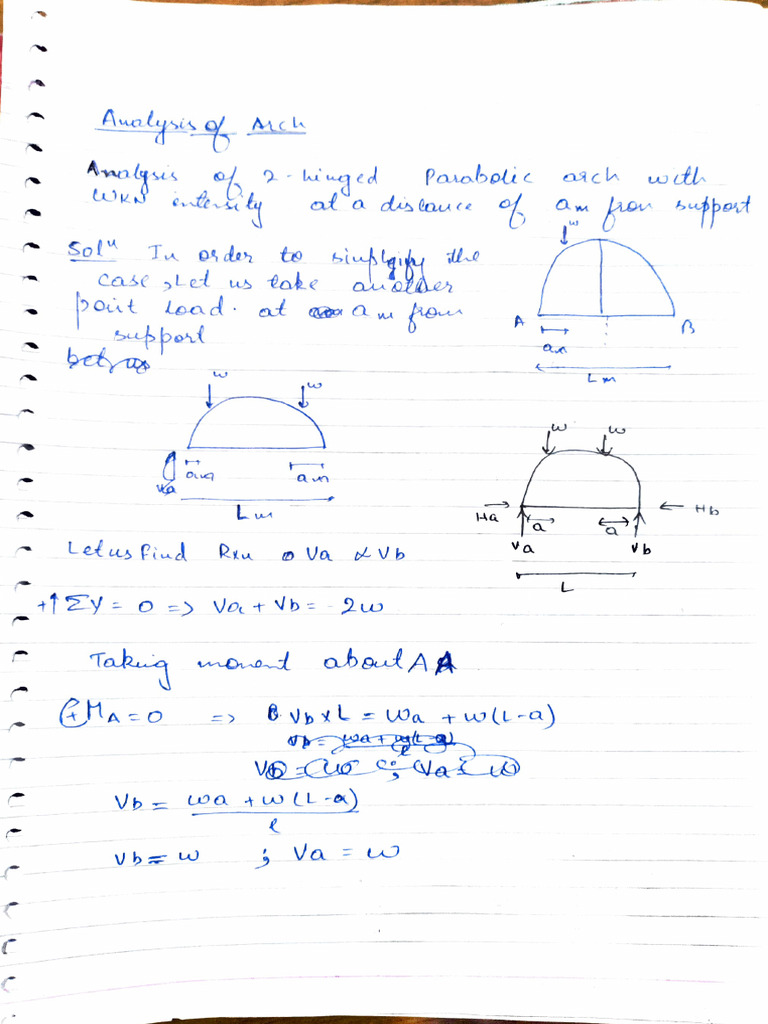 Analysis of Arch
Analysis of 2-hinged Parabolic arch with
WKN intensity at a distance of am from support
w
Solⁿ In order to simplgify the
case, Let us take another
point load. at am from
support
A
B
am
Lm
w
w
Va
am
am
Lm
w
w
Ha
Hb
a
a
Va
Vb
L
Let us find Rxn Va & Vb
+↑ ΣY = 0 => Va + Vb = 2w
Taking moment about A
(+ MA = 0 => Vb x L = wa + w(L-a)
Vb = wa + w(L-a)
l
Vb = w ; Va = w